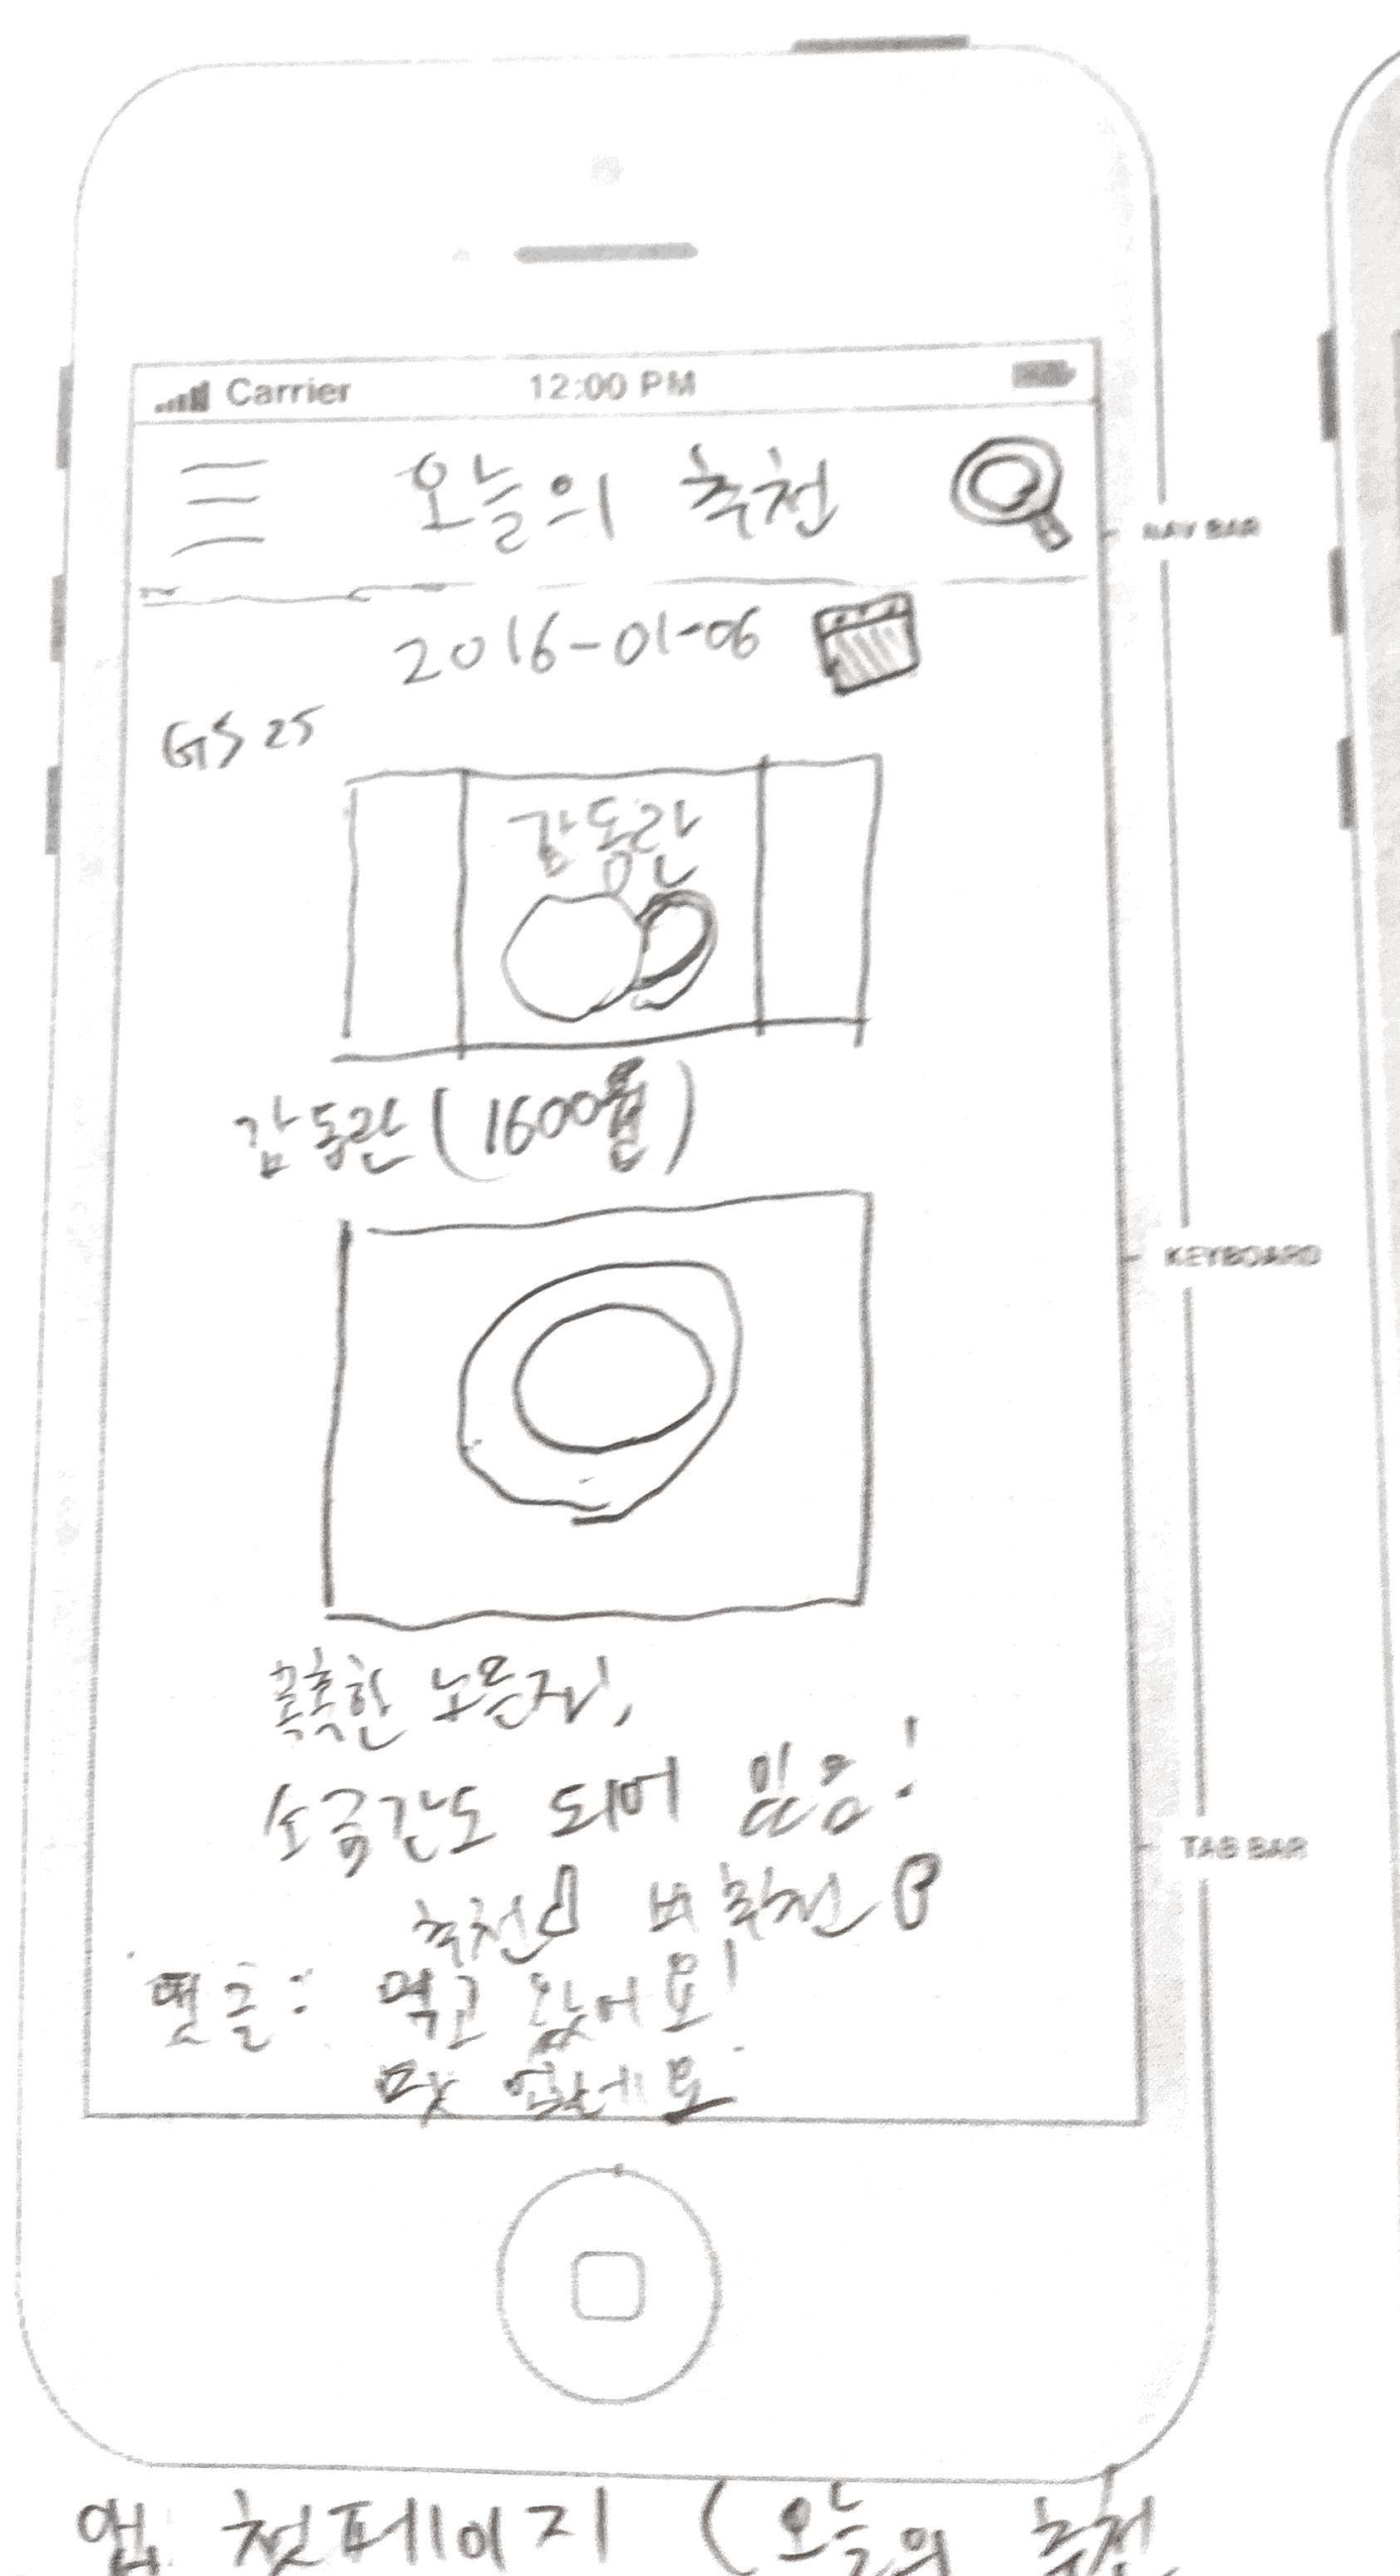 Carrier 12:00 PM
오늘의 추천
NAV BAR
2016-01-06
GS25
감동란
감동란 (1600원)
KEYBOARD
촉촉한 노른자,
소금간도 되어 있음!
TAB BAR
추천 비추천
댓글: 먹고 왔어요!
맛 없어요
앱 첫페이지 (오늘의 추천